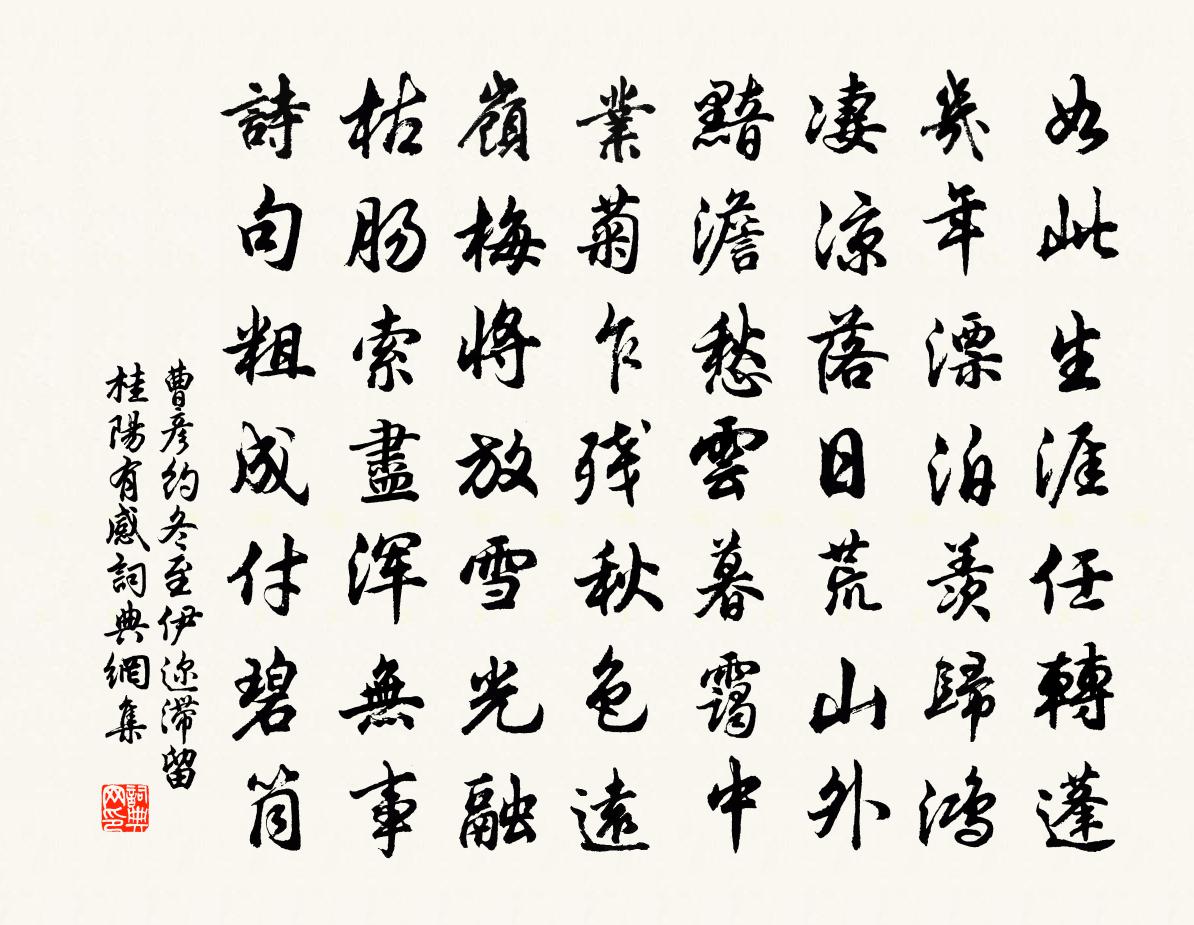 如此生涯任轉蓬
幾年漂泊羨歸鴻
凄涼落日荒山外
黯澹愁雲暮靄中
業菊乍殘秋色遠
嶺梅將放雪光融
枯腸索盡渾無事
詩句粗成付碧筒
曹彥約冬至伊邇滯留
桂陽有感詞典網集
詞典網印